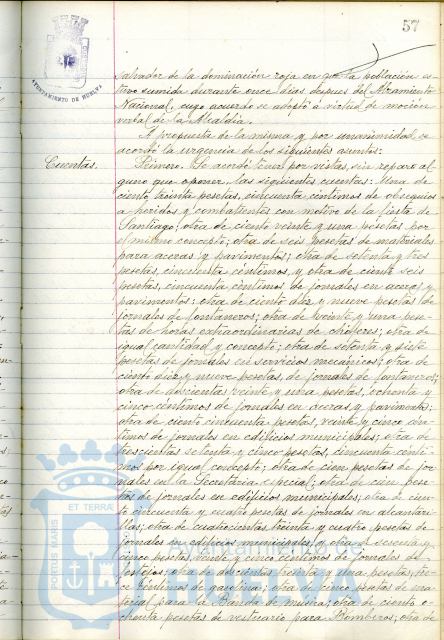 57
AYUNTAMIENTO DE HUELVA
salvador de la dominación roja en que la población es-
tuvo sumida durante once días después del Alzamiento
Nacional, cuyo acuerdo se adoptó á virtud de moción
verbal de la Alcaldía.
A propuesta de la misma y por unanimidad se
acordó la urgencia de los siguientes asuntos:
Cuentas.
Primero. Se acordó tener por vistas, sin reparo al-
guno que oponer, las siguientes cuentas: Una de
ciento treinta pesetas, cincuenta céntimos de obsequios
a heridos y combatientes con motivo de la fiesta de
Santiago; otra de ciento veinte y una pesetas por
el mismo concepto; otra de seis pesetas de materiales
para aceras y pavimentos; otra de setenta y tres
pesetas, cincuenta céntimos, y otra de ciento seis
pesetas, cincuenta céntimos de jornales en aceras y
pavimentos; otra de ciento diez y nueve pesetas de
jornales de fontaneros; otra de veinte y una pese-
tas de horas extraordinarias de choferes; otra de
igual cantidad y concepto; otra de setenta y siete
pesetas de jornales en servicios mecánicos; otra de
ciento diez y nueve pesetas de jornales de fontaneros;
otra de doscientas veinte y una pesetas, ochenta y
cinco céntimos de jornales en aceras y pavimentos;
otra de ciento cincuenta pesetas, veinte y cinco cén-
timos de jornales en edificios municipales; otra de
trescientas setenta y cinco pesetas, cincuenta cénti-
mos por igual concepto; otra de cien pesetas de jor-
nales en la Secretaría especial; otra de cien pese-
tas de jornales en edificios municipales; otra de cien-
to cincuenta y cuatro pesetas de jornales en alcantari-
llas; otra de cuatrocientas treinta y cuatro pesetas de
jornales en edificios municipales, y otra de sesenta y
cinco pesetas, veinte y cinco céntimos de jornales de
festejos; otra de doscientas treinta y una pesetas, tre-
ce céntimos de gasolina; otra de cinco pesetas de ma-
terial para la Banda de música; otra de ciento o-
chenta pesetas de vestuario para Bomberos; otra de
PORTUS MARIS ET TERRAE
Ayuntamiento de
HUELVA